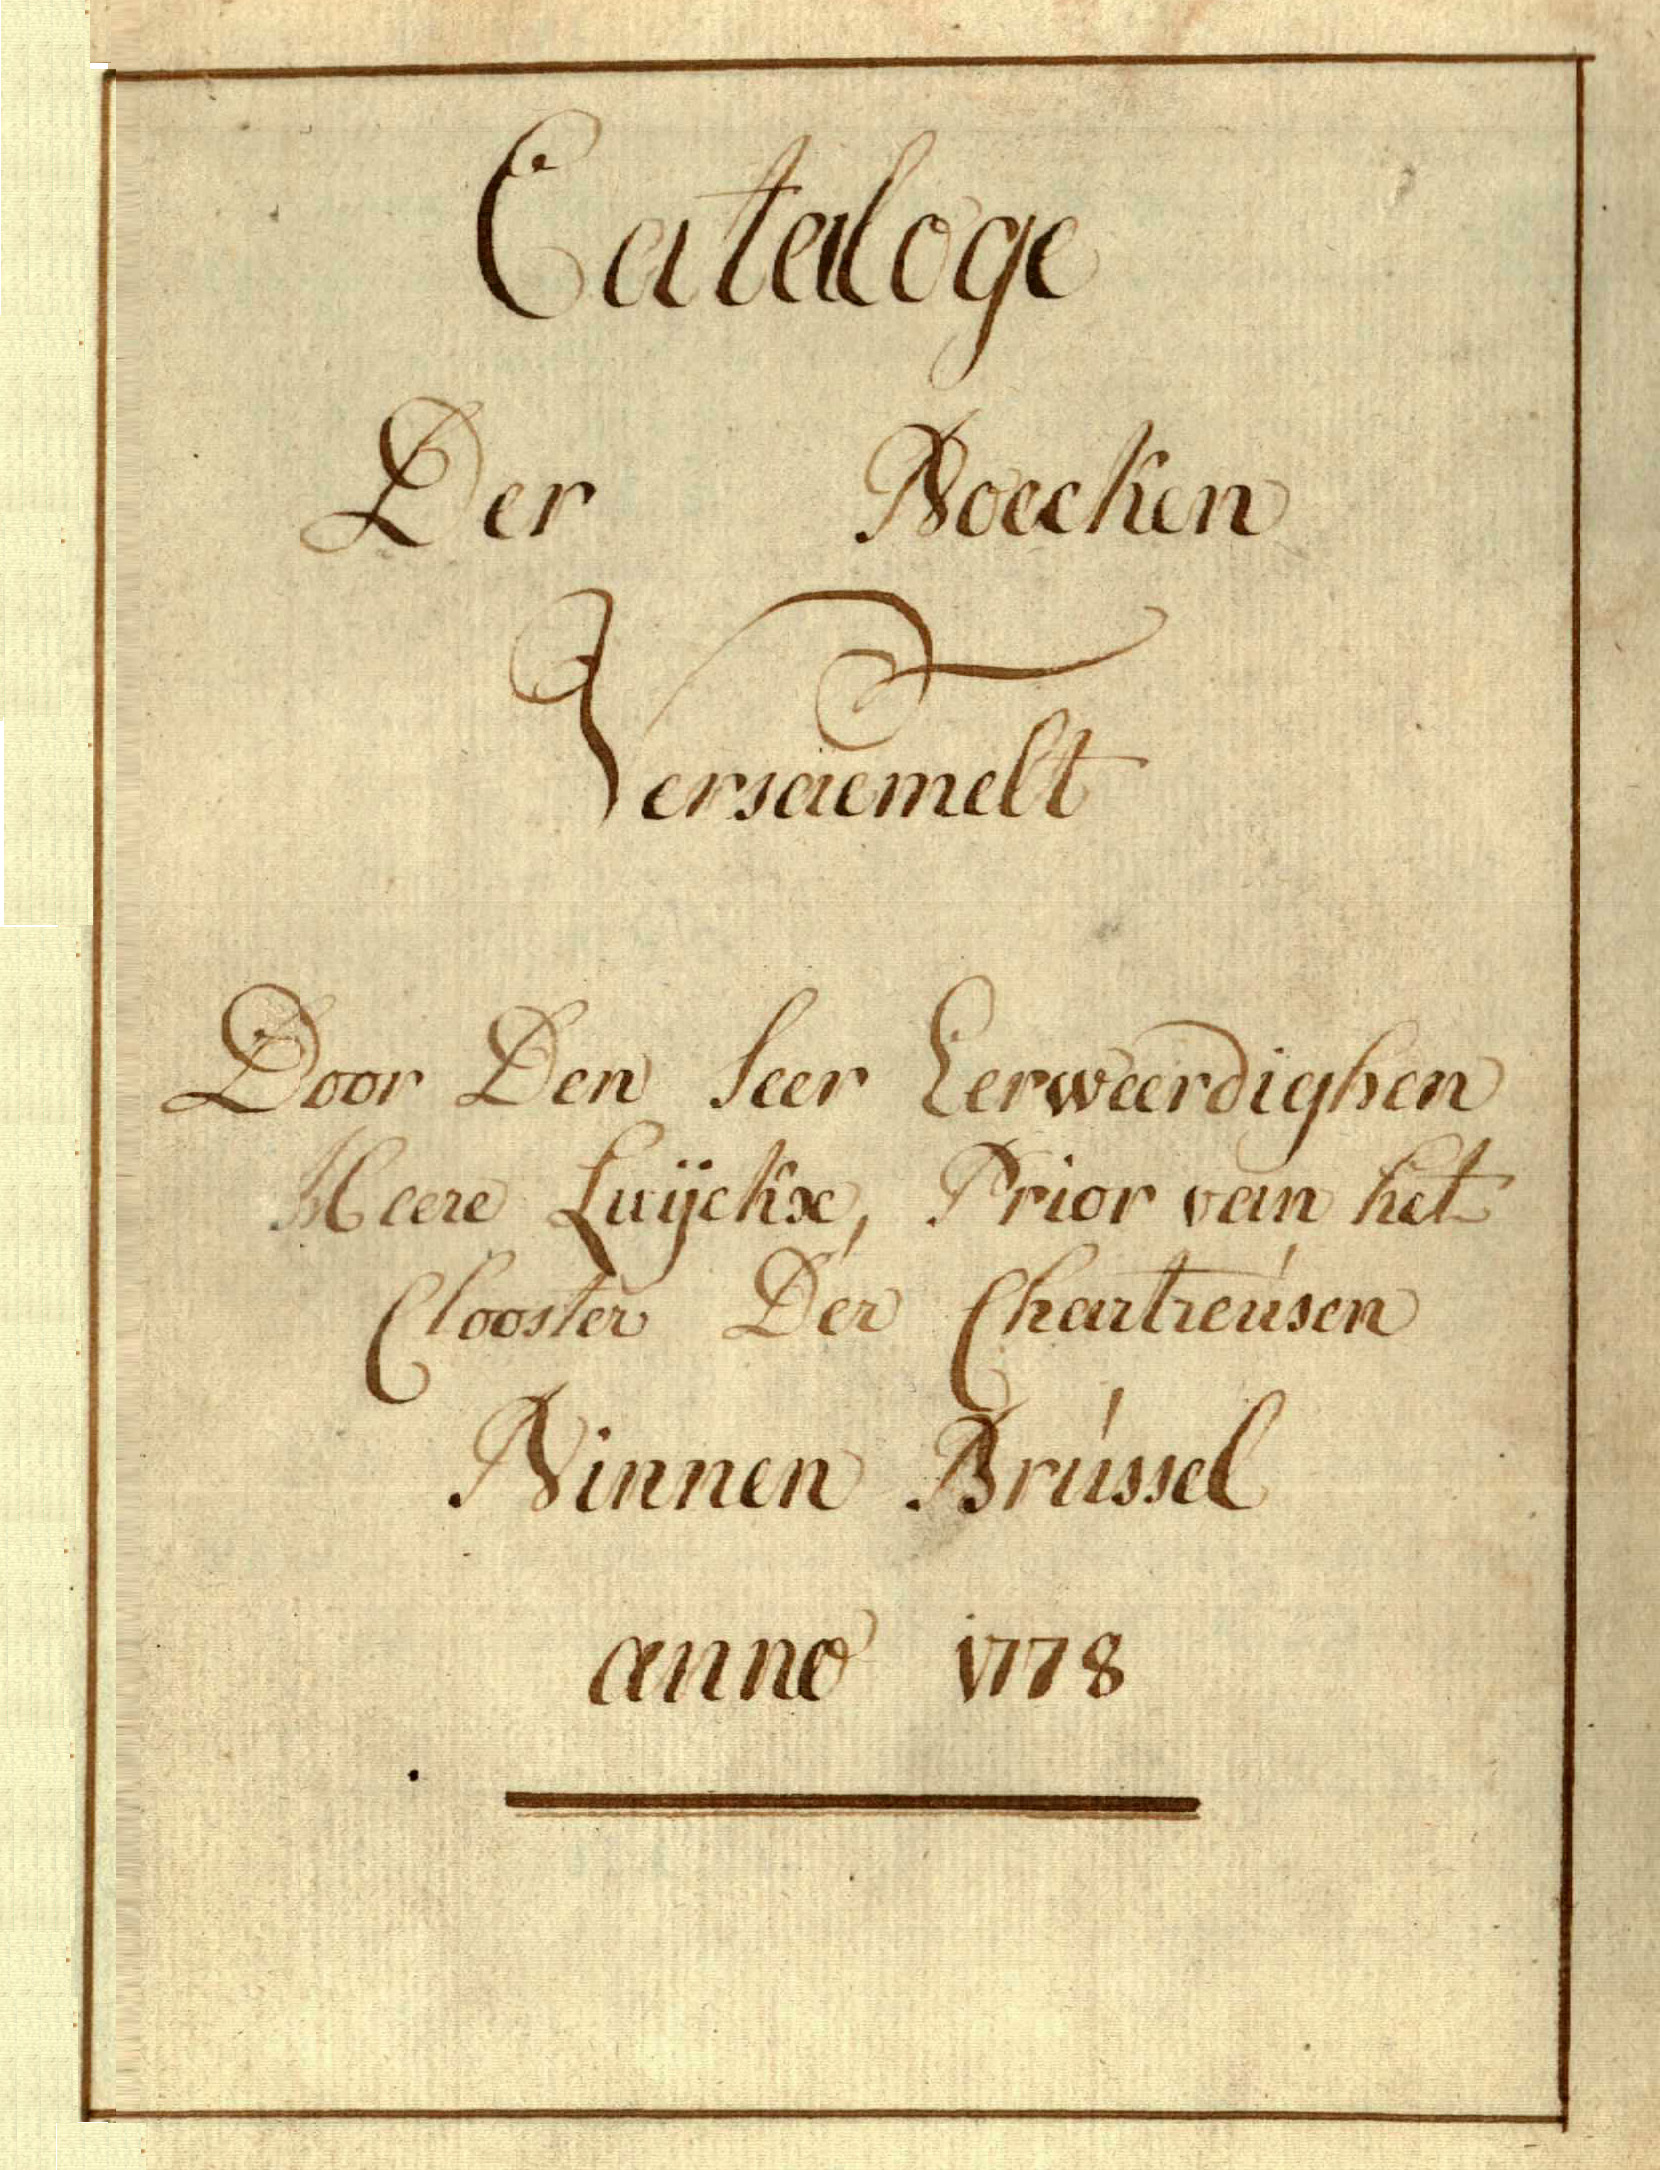 Cataloge
Der Boecken
Versaemelt
Door Den seer Eerweerdighen
Heere Luijckx, Prior van het
Clooster Der Chartreúsen
Binnen Brússel
anno 1778